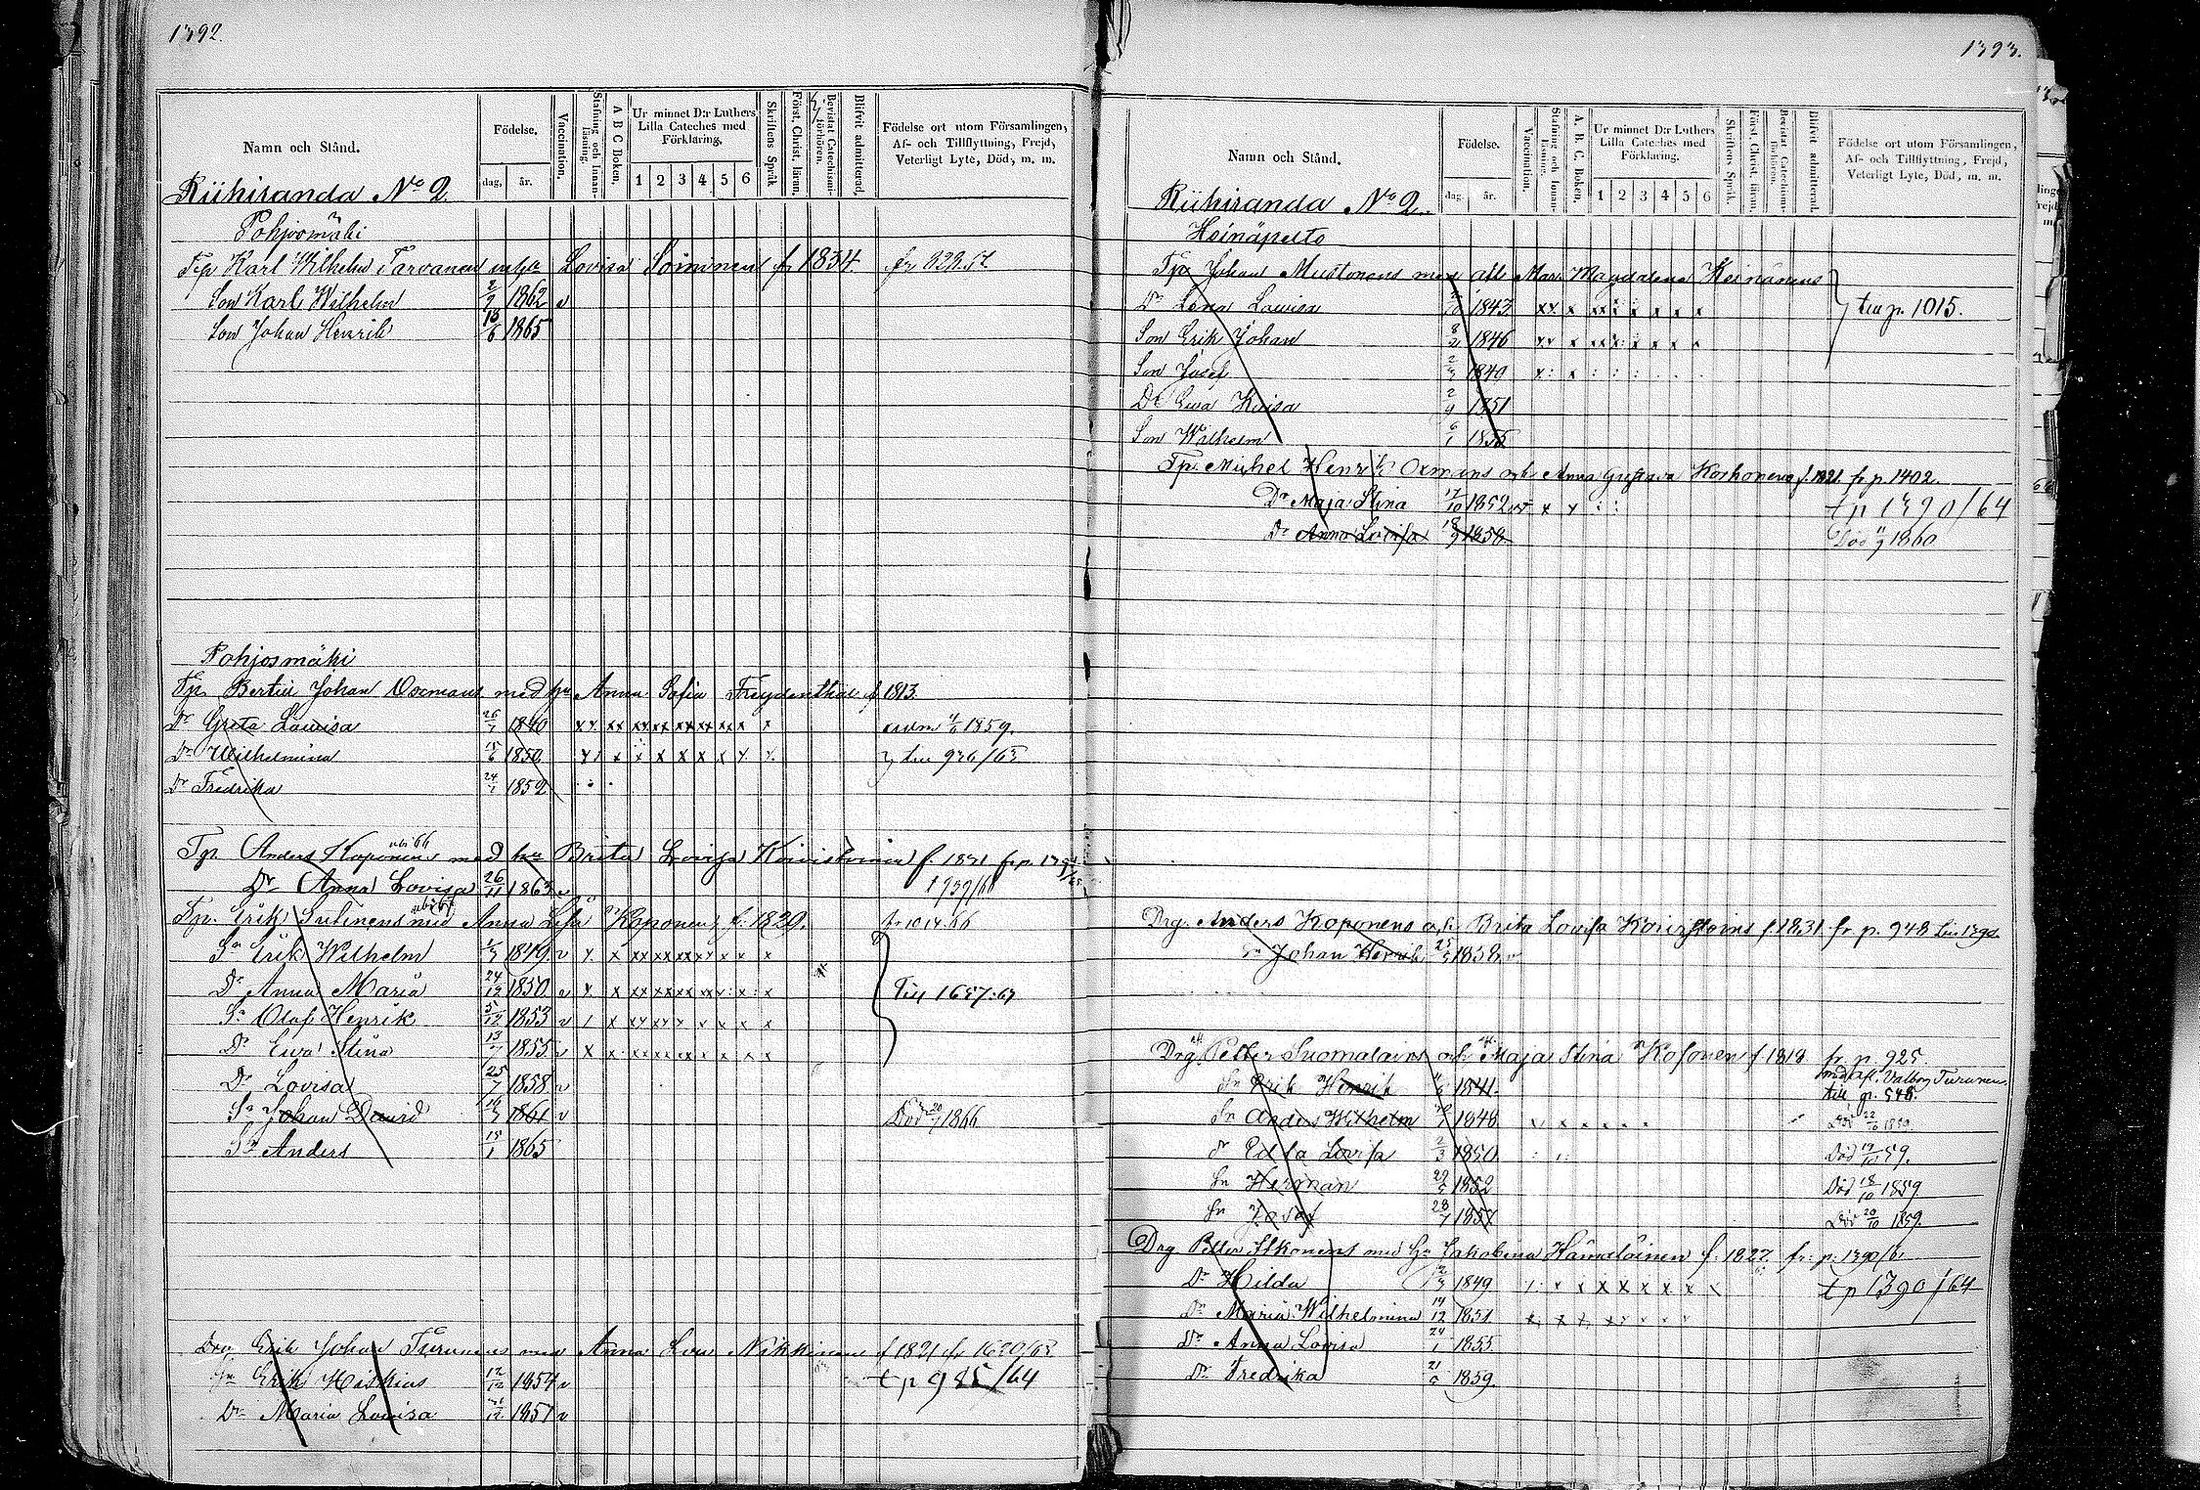 1392.
Namn och Stånd.
Födelse,
dag, år.
Vaccination,
Stafning och Innan-
läsning.
A B C Boken,
Ur minnet D:r Luthers
Lilla Cateches med
Förklaring,
1 2 3 4 5 6
Skriftens Språk
Först. Christ. läran,
Bevistat Catechismi-
förhören.
Blifvit admitterad,
Födelse ort utom Församlingen,
Af- och Tillflyttning, Frejd,
Veterligt Lyte, Död, m. m.
Riihiranda No 2
Pohjosmäki
Tp Karl Wilhelm Tarvanen Lovisa Soininen f 1834
Son Karl Wilhelm 2/9 1862 v
Son Johan Henrik 13/6 1865
Pohjosmäki
Tp. Bertil Johan Oxmans med hu Anna Sofia Freydenthal f 1813.
Dr Greta Lowisa 26/7 1840 1859.
Dr Wilhelmina 15/6 1850
Dr Fredrika 24/1 1852
Tp. Anders Koponens med hu Brita Lovisa Koivistoinen f. 1831
Dr Anna Lovisa 26/11 1863 v
Tp. Erik Sulinens med Anna Lisa Koponen f. 1829. fr 1014.66
Sn Erik Wilhelm 1849 v
Dr Anna Maria 24/12 1850 v Till 1637:67
Sn Olof Henrik 5/12 1853 v
Dr Ewa Stina 13/7 1855 v
Dr Lovisa 25/7 1858 v
Sn Johan David 1861 v Död 1866
Sn Anders 15/1 1865
Drg Erik Johan Turunens med Anna Lena Nikkinen f 1821 fr 1620/63
Sn Erik Matkias 12/12 1854 v tp 985/64
Dr Maria Lowisa 1857 v
1393.
Namn och Stånd.
Födelse.
dag år.
Vaccination,
Stafning och Innan-
läsning.
A. B. C. Boken,
Ur minnet D:r Luthers
Lilla Cateches med
Förklaring.
1 2 3 4 5 6
Skriftens Språk.
Först. Christ. läran,
Bevistat Catechismi-
förhören.
Blifvit admitterad.
Födelse ort utom Församlingen,
Af- och Tillflyttning, Frejd,
Veterligt Lyte, Död, m. m.
Riihiranda No 2
Heinäpelto
Tp. Johan Mustonens med Mar. Magdalena Heinänens
Dr Lena Lowisa 1843. till p. 1015.
Son Erik Johan 8/2 1846
Son Josef 1849
Dr Ewa Kaisa 2/4 1851
Son Wilhelm 6/1 1855
Tp. Michel Henrik Oxmans och Anna Gustava Korhonen f. 1821 fr p. 1402.
Dr Maja Stina 17/10 1852 tp 1390/64
Dr Anna Lovisa 18/9 1858 Död 11/9 1860
Drg. Anders Koponens och Brita Lovisa Koivistoins f 1831 fr. p. 948
Sn Johan Henrik 25/5 1858. v
Drg. Petter Suomalains och Maja Stina Kosonen f. 1818 fr. p. 925.
Sn Erik Henrik 1841. Valborg Turunen
till p. 948.
Sn Anders Wilhelm 1848 Död 22/10 1859
Dr Edla Lovisa 2/3 1850. Död 19/10 59.
Sn Herman 29/5 1852 Död 18/10 1859.
Sn Josef 28/7 1857 Död 20/10 1859.
Drg Petter Ilkonens med hu Jakobina Hämäläinen f. 1827. fr: p. 1390/61
Dr Hilda 1849 tp 1390/64
Dr Maria Wilhelmina 14/12 1851
Dr Anna Lovisa 24/1 1855
Dr Fredrika 1859.